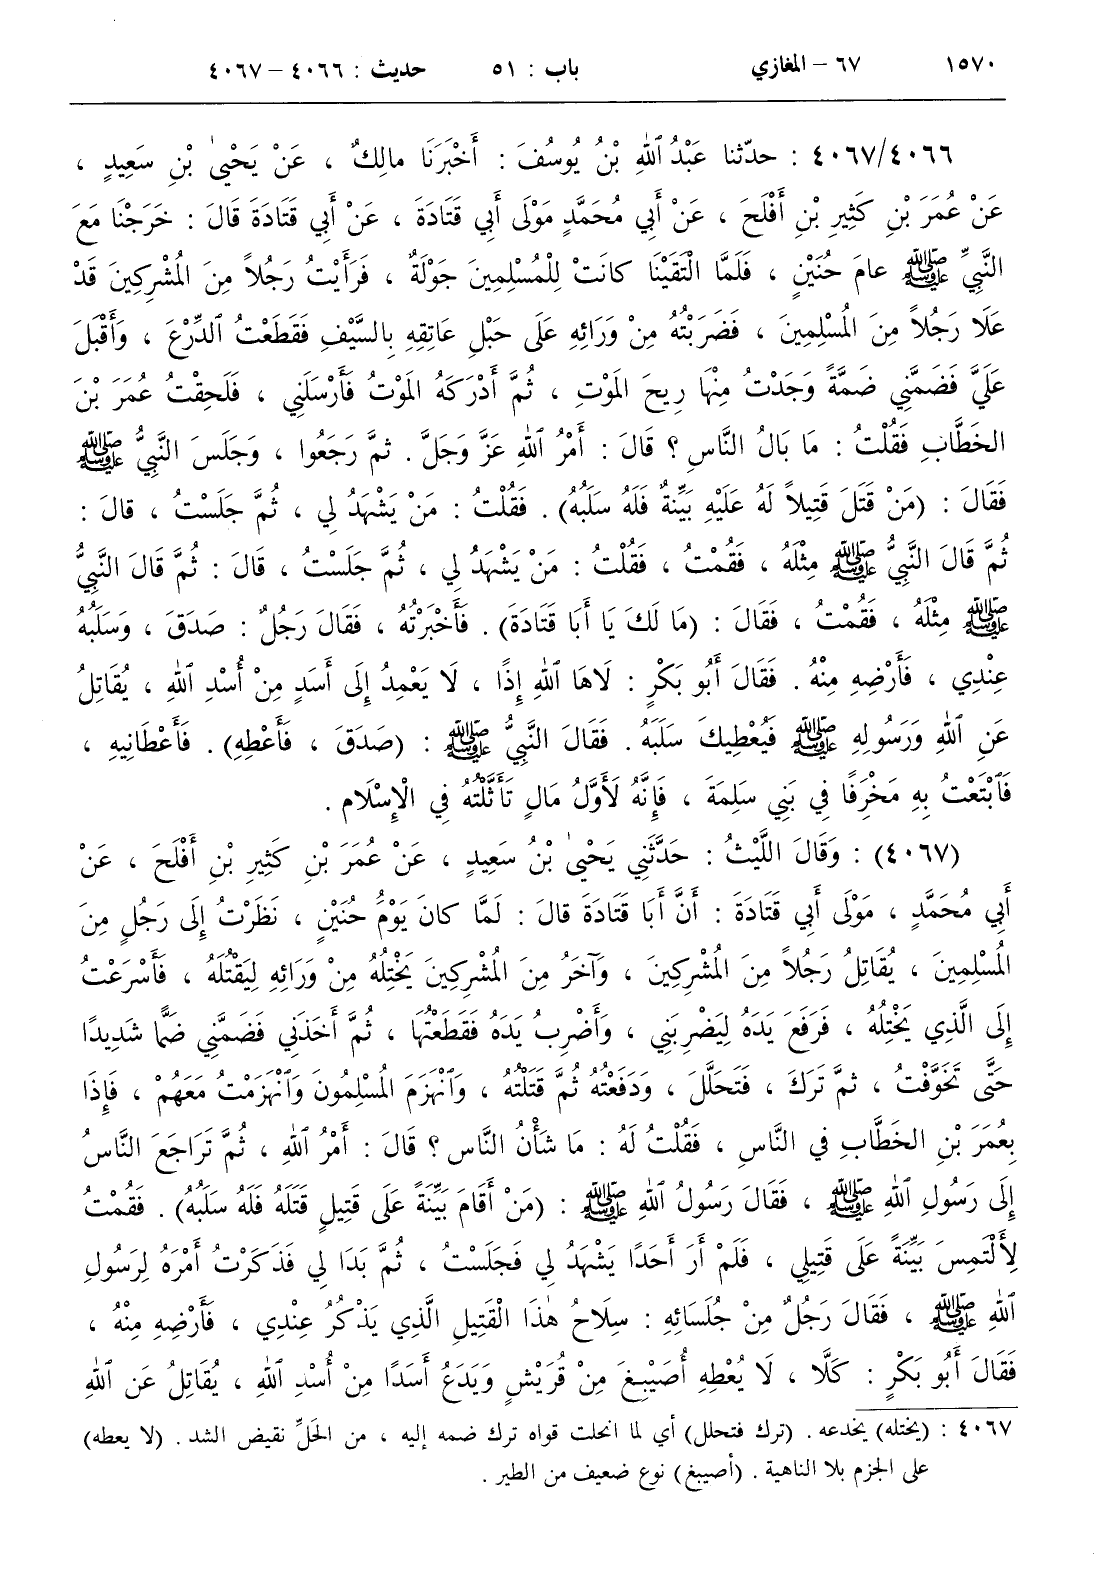 ١٥٧٠ ٦٧ – المغازي باب : ٥١ حديث : ٤٠٦٦ – ٤٠٦٧
٤٠٦٧/٤٠٦٦ : حدّثنا عَبْدُ ٱللهِ بْنُ يُوسُفَ : أَخْبَرَنَا مالِكٌ ، عَنْ يَحْيىٰ بْنِ سَعِيدٍ ،
عَنْ عُمَرَ بْنِ كَثِيرِ بْنِ أَفْلَحَ ، عَنْ أَبِي مُحَمَّدٍ مَوْلَى أَبِي قَتَادَةَ ، عَنْ أَبِي قَتَادَةَ قالَ : خَرَجْنَا مَعَ
النَّبِيِّ ﷺ عامَ حُنَيْنٍ ، فَلَمَّا الْتَقَيْنَا كانَتْ لِلْمُسْلِمِينَ جَوْلَةٌ ، فَرَأَيْتُ رَجُلاً مِنَ الْمُشْرِكِينَ قَدْ
عَلَا رَجُلاً مِنَ الْمُسْلِمِينَ ، فَضَرَبْتُهُ مِنْ وَرَائِهِ عَلَى حَبْلِ عَاتِقِهِ بِالسَّيْفِ فَقَطَعْتُ ٱلدِّرْعَ ، وَأَقْبَلَ
عَلَيَّ فَضَمَّنِي ضَمَّةً وَجَدْتُ مِنْهَا رِيحَ المَوْتِ ، ثُمَّ أَدْرَكَهُ المَوْتُ فَأَرْسَلَنِي ، فَلَحِقْتُ عُمَرَ بْنَ
الخَطَّابِ فَقُلْتُ : مَا بَالُ النَّاسِ ؟ قَالَ : أَمْرُ ٱللهِ عَزَّ وَجَلَّ . ثمَّ رَجَعُوا ، وَجَلَسَ النَّبِيُّ ﷺ
فَقَالَ : (مَنْ قَتَلَ قَتِيلاً لَهُ عَلَيْهِ بَيِّنَةٌ فَلَهُ سَلَبُهُ) . فَقُلْتُ : مَنْ يَشْهَدُ لِي ، ثُمَّ جَلَسْتُ ، قالَ :
ثُمَّ قَالَ النَّبِيُّ ﷺ مِثْلَهُ ، فَقُمْتُ ، فَقُلْتُ : مَنْ يَشْهَدُ لِي ، ثُمَّ جَلَسْتُ ، قَالَ : ثُمَّ قَالَ النَّبِيُّ
ﷺ مِثْلَهُ ، فَقُمْتُ ، فَقَالَ : (مَا لَكَ يَا أَبَا قَتَادَةَ) . فَأَخْبَرْتُهُ ، فَقَالَ رَجُلٌ : صَدَقَ ، وَسَلَبُهُ
عِنْدِي ، فَأَرْضِهِ مِنْهُ . فَقَالَ أَبُو بَكْرٍ : لَاهَا ٱللهِ إِذًا ، لَا يَعْمِدُ إِلَى أَسَدٍ مِنْ أُسْدِ ٱللهِ ، يُقَاتِلُ
عَنِ ٱللهِ وَرَسُولِهِ ﷺ فَيُعْطِيكَ سَلَبَهُ . فَقَالَ النَّبِيُّ ﷺ : (صَدَقَ ، فَأَعْطِهِ) . فَأَعْطَانِيهِ ،
فَٱبْتَعْتُ بِهِ مَخْرَفًا فِي بَنِي سَلِمَةَ ، فَإِنَّهُ لَأَوَّلُ مَالٍ تَأَثَّلْتُهُ فِي الْإِسْلَامِ .
(٤٠٦٧) : وَقَالَ اللَّيْثُ : حَدَّثَنِي يَحْيىٰ بْنُ سَعِيدٍ ، عَنْ عُمَرَ بْنِ كَثِيرِ بْنِ أَفْلَحَ ، عَنْ
أَبِي مُحَمَّدٍ ، مَوْلَى أَبِي قَتَادَةَ : أَنَّ أَبَا قَتَادَةَ قالَ : لَمَّا كانَ يَوْمُ حُنَيْنٍ ، نَظَرْتُ إِلَى رَجُلٍ مِنَ
الْمُسْلِمِينَ ، يُقَاتِلُ رَجُلاً مِنَ الْمُشْرِكِينَ ، وَآخَرُ مِنَ الْمُشْرِكِينَ يَخْتِلُهُ مِنْ وَرَائِهِ لِيَقْتُلَهُ ، فَأَسْرَعْتُ
إِلَى الَّذِي يَخْتِلُهُ ، فَرَفَعَ يَدَهُ لِيَضْرِبَنِي ، وَأَضْرِبُ يَدَهُ فَقَطَعْتُهَا ، ثُمَّ أَخَذَنِي فَضَمَّنِي ضَمًّا شَدِيدًا
حَتَّى تَخَوَّفْتُ ، ثمَّ تَرَكَ ، فَتَحَلَّلَ ، وَدَفَعْتُهُ ثُمَّ قَتَلْتُهُ ، وَٱنْهَزَمَ المُسْلِمُونَ وَٱنْهَزَمْتُ مَعَهُمْ ، فَإِذَا
بِعُمَرَ بْنِ الخَطَّابِ فِي النَّاسِ ، فَقُلْتُ لَهُ : مَا شَأْنُ النَّاسِ ؟ قَالَ : أَمْرُ ٱللهِ ، ثُمَّ تَرَاجَعَ النَّاسُ
إِلَى رَسُولِ ٱللهِ ﷺ ، فَقَالَ رَسُولُ ٱللهِ ﷺ : (مَنْ أَقَامَ بَيِّنَةً عَلَى قَتِيلٍ قَتَلَهُ فَلَهُ سَلَبُهُ) . فَقُمْتُ
لِأَلْتَمِسَ بَيِّنَةً عَلَى قَتِيلِي ، فَلَمْ أَرَ أَحَدًا يَشْهَدُ لِي فَجَلَسْتُ ، ثُمَّ بَدَا لِي فَذَكَرْتُ أَمْرَهُ لِرَسُولِ
ٱللهِ ﷺ ، فَقَالَ رَجُلٌ مِنْ جُلَسَائِهِ : سِلَاحُ هٰذَا الْقَتِيلِ الَّذِي يَذْكُرُ عِنْدِي ، فَأَرْضِهِ مِنْهُ ،
فَقَالَ أَبُو بَكْرٍ : كَلَّا ، لَا يُعْطِهِ أُصَيْبِغَ مِنْ قُرَيْشٍ وَيَدَعُ أَسَدًا مِنْ أُسْدِ ٱللهِ ، يُقَاتِلُ عَنِ ٱللهِ
٤٠٦٧ : (يختله) يخدعه . (ترك فتحلل) أي لما انحلت قواه ترك ضمه إليه ، من الحَلِّ نقيض الشد . (لا يعطه)
على الجزم بلا الناهية . (أصيبغ) نوع ضعيف من الطير .